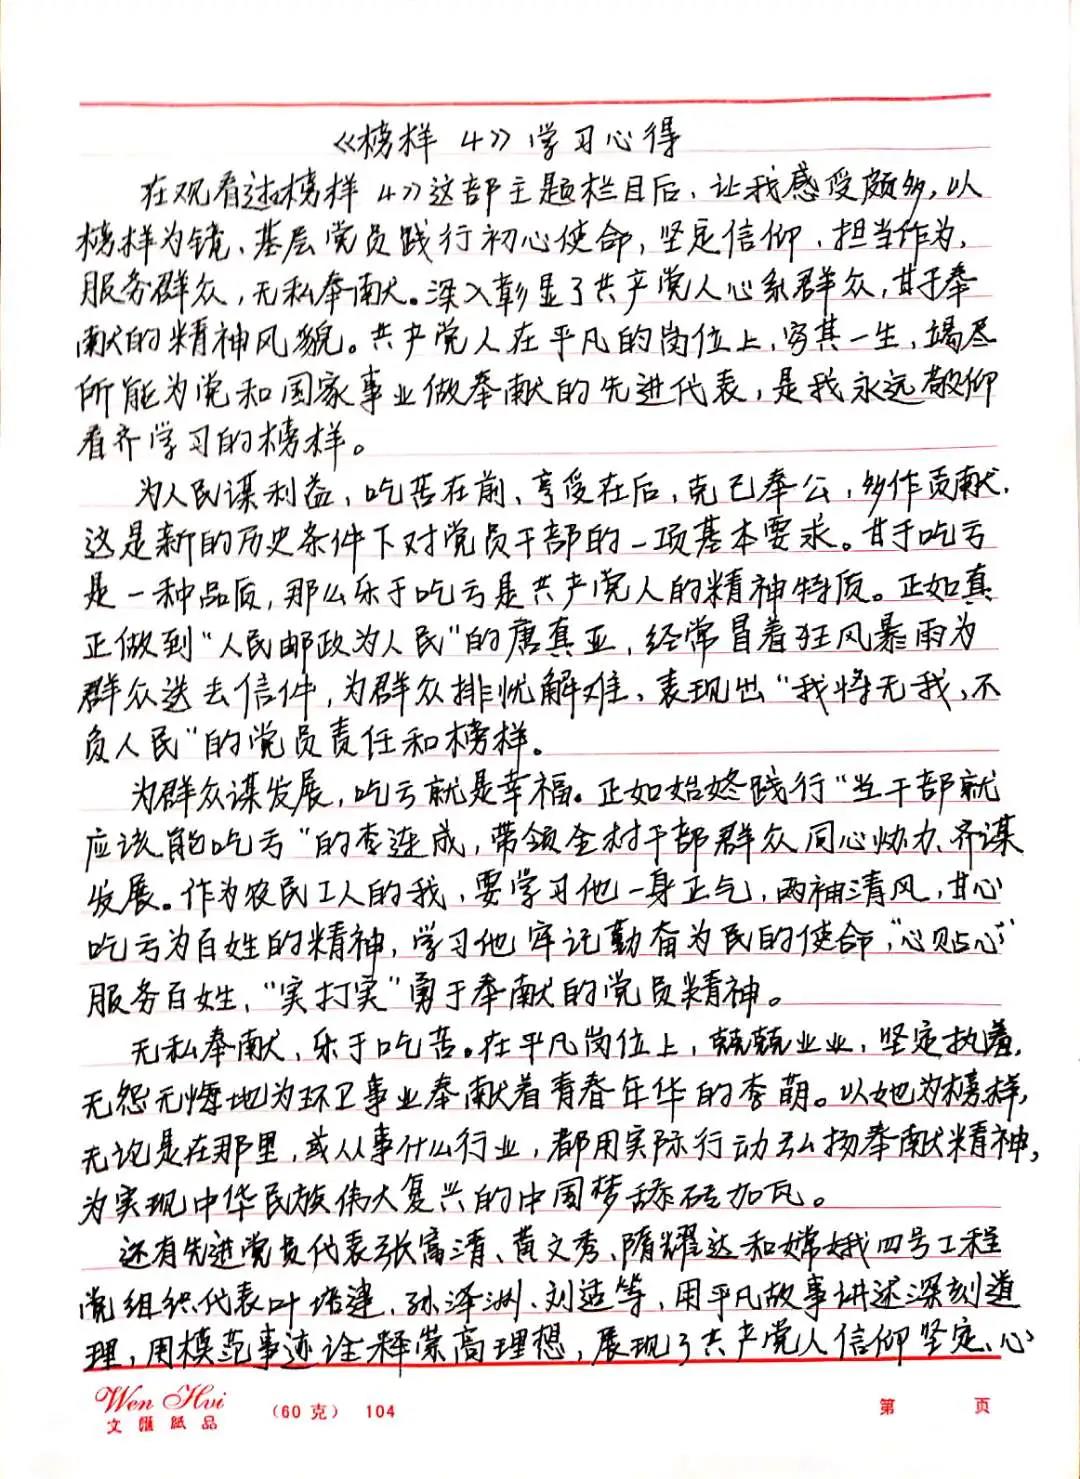 《榜样 4》学习心得
在观看过榜样 4》这部主题栏目后、让我感受颇多,以
榜样为镜、基层党员践行初心使命,坚定信仰、担当作为,
服务群众,无私奉献。深入彰显了共产党人心系群众,甘于奉
献的精神风貌。共产党人在平凡的岗位上,穷其一生,竭尽
所能为党和国家事业做奉献的先进代表,是我永远敬仰
看齐学习的榜样。
为人民谋利益,吃苦在前、享受在后,克己奉公,多作贡献.
这是新的历史条件下对党员干部的一项基本要求。甘于吃亏
是一种品质,那么乐于吃亏是共产党人的精神特质。正如真
正做到“人民邮政为人民”的唐真亚,经常冒着狂风暴雨为
群众送去信件,为群众排忧解难、表现出“我将无我,不
负人民”的党员责任和榜样。
为群众谋发展,吃亏就是幸福。正如始终践行“当干部就
应该能吃亏”的李连成,带领全村干部群众同心协力、齐谋
发展。作为农民工人的我,要学习他一身正气,两袖清风,甘心
吃亏为百姓的精神,学习他牢记勤奋为民的使命,“心贴心”
服务百姓,“实打实”勇于奉献的党员精神。
无私奉献,乐于吃苦。在平凡岗位上,兢兢业业,坚定执着,
无怨无悔地为环卫事业奉献着青春年华的李萌。以她为榜样,
无论是在那里,或从事什么行业,都用实际行动弘扬奉献精神,
为实现中华民族伟大复兴的中国梦舔砖加瓦。
还有先进党员代表张富清、黄文秀、隋耀达和嫦娥四号工程
党组织代表叶培建、孙泽洲、刘适等,用平凡故事讲述深刻道
理,用模范事迹诠释崇高理想,展现了共产党人信仰坚定、心
Wen Hvi
文匯紙品
(60克) 104
第 页